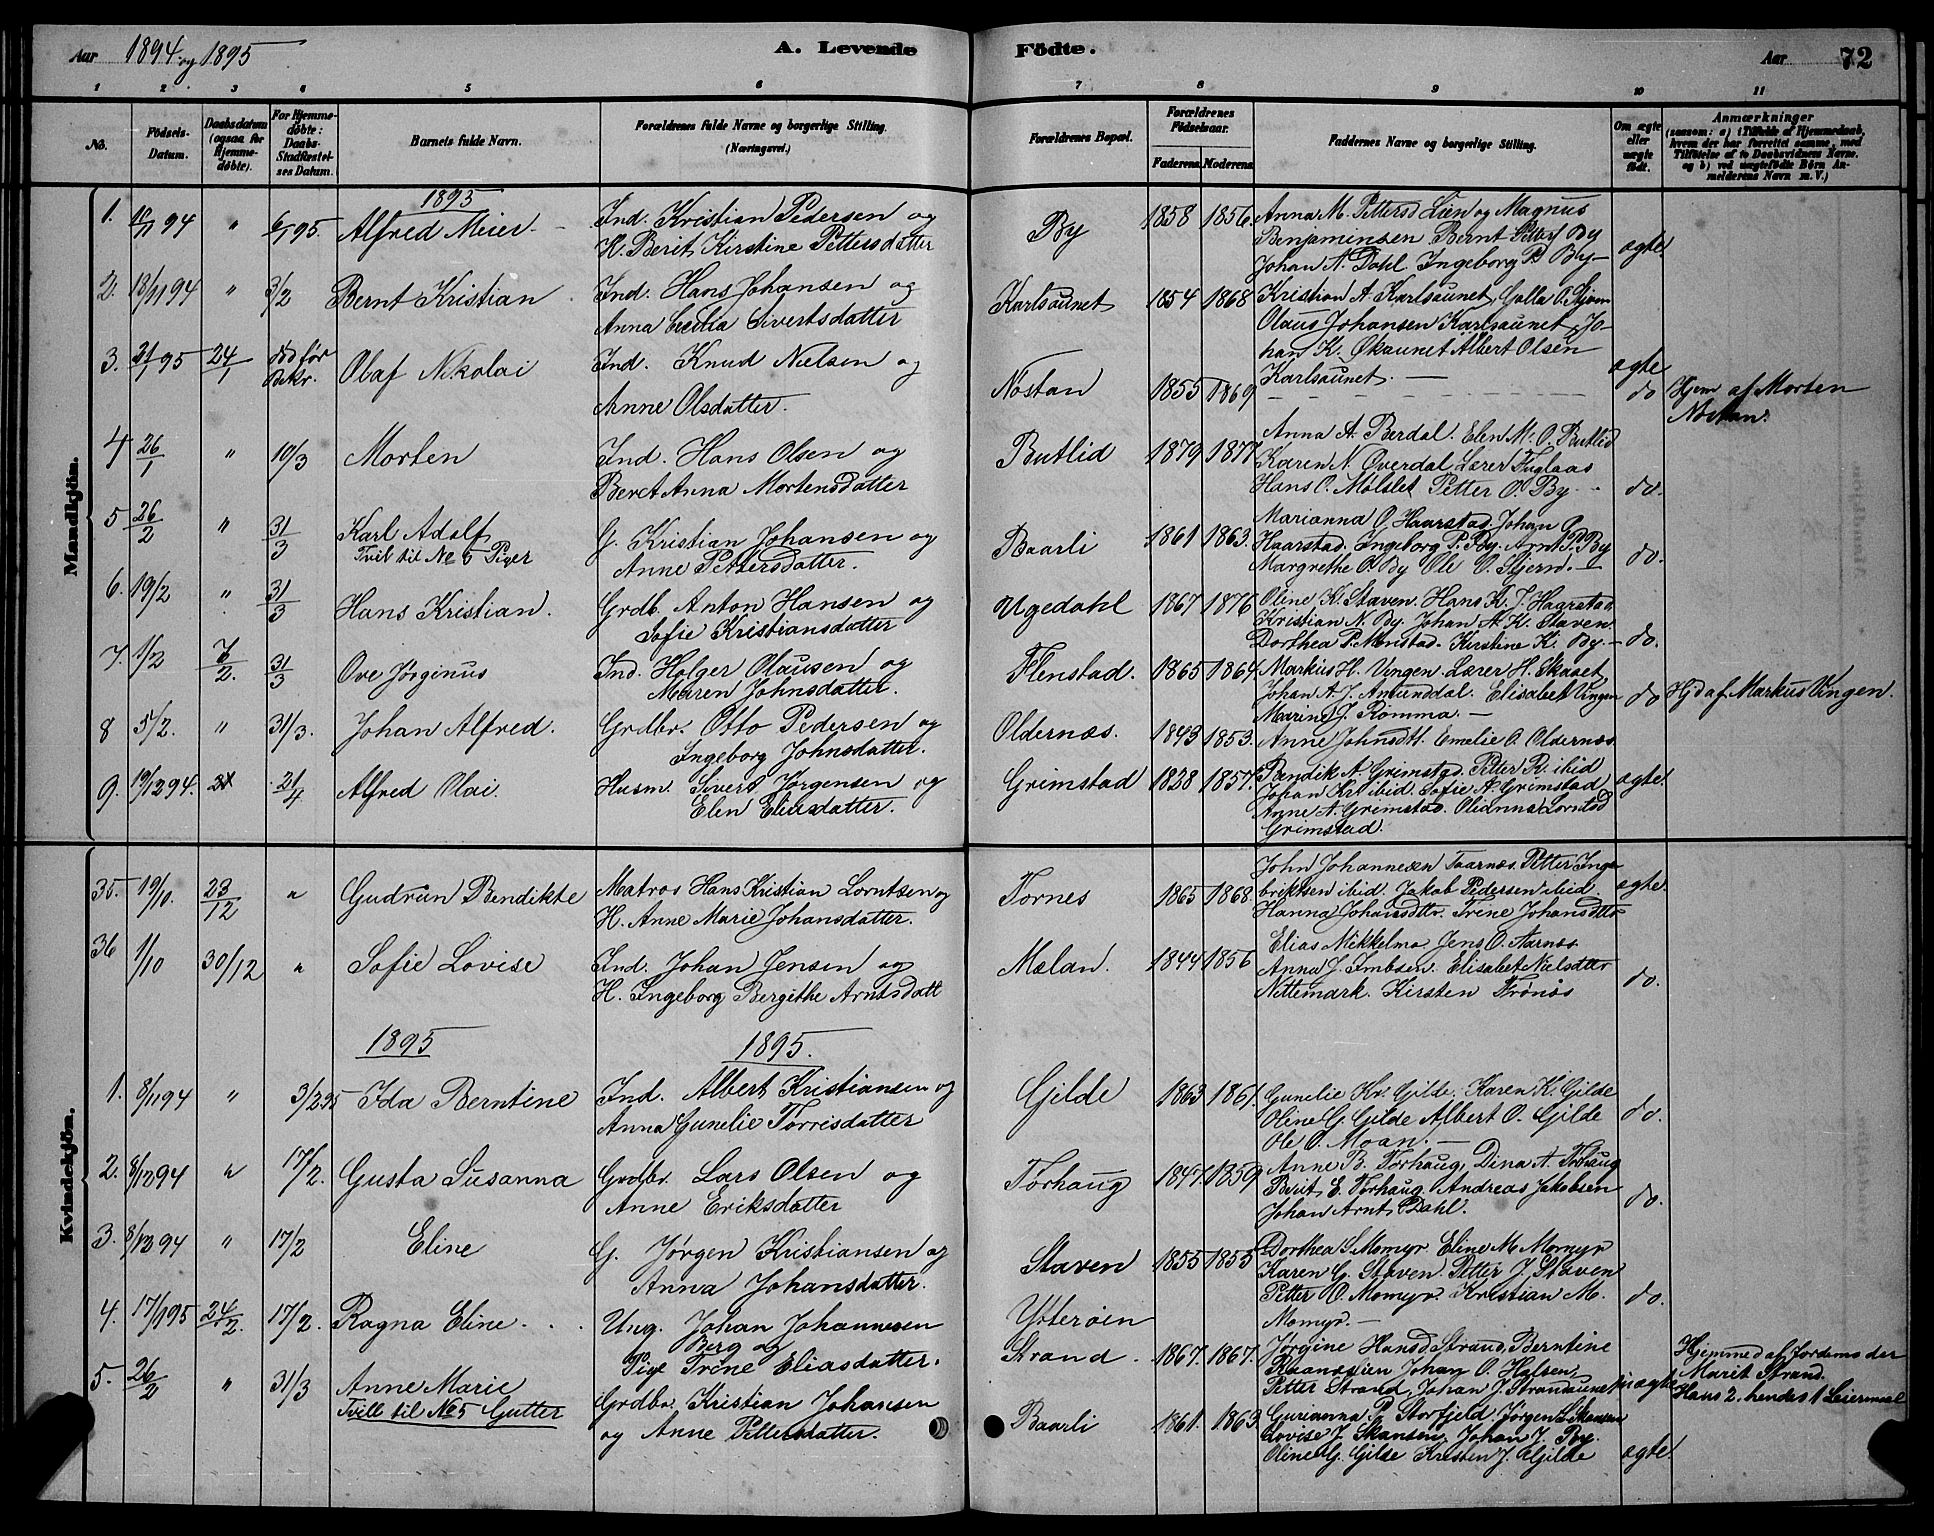 Aar 1894 og 1895
A. Levende
Födte.
Aar 72
1 2 3 4 5 6 7 8 9 10 11
No.
Födsels-Datum.
Daabsdatum (ogsaa for Hjemme-döbte).
For Hjemme-döbte: Daabs-Stadfæstel-ses Datum.
Barnets fulde Navn.
Forældrenes fulde Navne og borgerlige Stilling. (Næringsvei.)
Forældrenes Bopæl.
Forældrenes Födselsaar.
Faderens. Moderens.
Faddernes Navne og borgerlige Stilling.
Om ægte eller uægte födt.
Anmærkninger
(saasom: a) i Tilfælde af Hjemmedaab, hvem der har forrettet samme, med Tilföielse af to Daabsvidners Navne, og b) ved uægtefödte Börn An-melderens Navn m. V.)
Mandkjön.
1895
1. 94 " 6/1 95. Alfred Meier
Ind. Kristian Pedersen og
K. Berit Kirstine Pettersdatter
By 1858 1856.
Anna M. Pettersd Lien og Magnus
Benjaminsen Bernt Petters By
Johan A. Dahl. Ingeborg P. By
ægte
2. 18/11 94 " 3/2 Bernt Kristian
Ind. Hans Johansen og
Anna Cecilia Sivertsdatter
Karlsaunet 1854 1868
Kristian A. Karlsaunet, Golla O. Stjern
Olaus Johansen Karlsaunet, Jo-
han K. Økaunet Albert Olsen
Karlsaunet.
ægte
3. 95 24/1 död för Bekr. Olaf Nikolai
Ind. Knud Nielsen og
Anne Olsdatter.
Nöstan 1855 1869
do
Hjem af Morten
Nöstan.
4 26/1 " 10/3 Morten
Ind. Hans Olsen og
Beret Anna Mortensdatter
Butlid 1879 1877
Anna A. Berdal. Elen M. O. Butlid
Karen N. Överdal Lærer Fuglaas
Hans O. Mölslet Petter O. By
do.
5 26/2 " 31/3 Karl Adolf
Tvil til No 5 Piger
G. Kristian Johansen og
Anne Pettersdatter.
Baarli 1861 1863.
Marianna O. Haarstad. Johan O.
Haarstad. Ingeborg P. By. Arnt P. By
Margrethe O. By Ole O. Stjern.
do.
6. 19/2 " 31/3 Hans Kristian.
Grdb. Anton Hansen og
Sofie Kristiansdatter
Ugedahl 1867 1876
Oline K. Staven. Hans K. J. Haarstad.
Kristian N. By. Johan A. K. Staven
Dorthea P. Monstad. Kirstine K. By.
do.
7. 1/2 7/2. 31/3 Ove Jörginus
Ind. Holger Olausen og
Maren Johnsdatter.
Flenstad. 1865 1864.
Markus H. Vingen. Lærer H. Skaset
Johan A. J. Amunddal. Elisabet Vingen
Marine J. Romma.
do
Hjd af Markus Vingen.
8 5/2. " 31/3. Johan Alfred.
Grdbr. Otto Pedersen og
Ingeborg Johnsdatter.
Oldernæs. 1843 1853.
Anne Johnsdtt. Emelie O. Oldernæs
9. 19/12 94. 21/4 Alfred Olai.
Husm. Sivert Jörgensen og
Elen Eliasdatter.
Grimstad 1838 1857.
Bendik A. Grimstad. Petter R. ibid
Johan Kr ibid. Sofie A. Grimstad
Anne A. Grimstad. Olianna Lorntsd
Grimstad.
ægte.
Kvindekjön.
35. 19/10. 23/12 " Gudrun Bendikte
Matros Hans Kristian Lorntsen og
H. Anne Marie Johansdatter.
Tornes 1865 1868.
John Johannesen Taarnæs. Petter Inge
briktsen ibid. Jakob Pedersen ibid.
Hanna Johansdttr. Trine Johansdttr
ægte.
36 1/10 30/12 " Sofie Lovise
Ind. Johan Jensen og
H. Ingeborg Bergithe Arntsdatt
Mælan. 1844 1856
Elias Mikkelmo Jens O. Aarnæs
Anna J. Imbsen. Elisabet Nielsdttr
Nettemark. Kirsten Trönæs
do.
1895 1895.
1. 8/11 94 " 3/2 95 Ida Berntine
Ind. Albert Kristiansen og
Anna Gunelie Torrisdatter
Gjelde 1863 1861.
Gunelie Kr. Gjilde. Karen K. Gjilde
Oline G. Gjilde Albert O. Gjilde
Ole O. Moan.
do.
2. 8/12 94 " 17/2. Gusta Susanna
Grdbr. Lars Olsen og
Anne Eriksdatter
Torhaug 1847. 1859
Anne B. Torhaug, Dina A. Torhaug
Berit E. Torhaug. Andreas Jakobsen
Johan Arnt Dahl.
do.
3. 8/12 94 " 17/2 Eline
G. Jörgen Kristiansen og
Anna Johansdatter.
Staven 1855 1855
Dorthea S. Momyr Eline M. Momyr
Karen G. Staven. Petter J. Staven
Petter O. Momyr. Kristian M.
Momyr.
do.
4. 17/1 95 24/2. 17/2. Ragna Eline
Ung. Johan Johannesen
Berg og
Pige Trine Eliasdatter.
Ytteröien
Strand. 1867. 1867.
Jörgine Hansd Strand, Berntine
Johan O. Halsen,
Petter Strand, Johan J. Strandaunet
uægte
Hjemmed af Jordemoder
Marit Strand.
Hans 2. hendes 1 Leiermaal
5. 26/2 " 31/3 Anne Marie
Tvill til No 5 Gutter
Grdbr. Kristian Johansen
og Anne Pettersdatter.
Baarli 1861. 1863
Gurianna P. Storfjeld. Jörgen L. Skansen
Lovise J. Skansen, Johan J. By.
Oline G. Gjilde Kristen J. Gjilde
ægte.